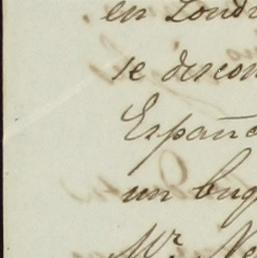 en Lond
se discon
España
un buq
Mr. Ne